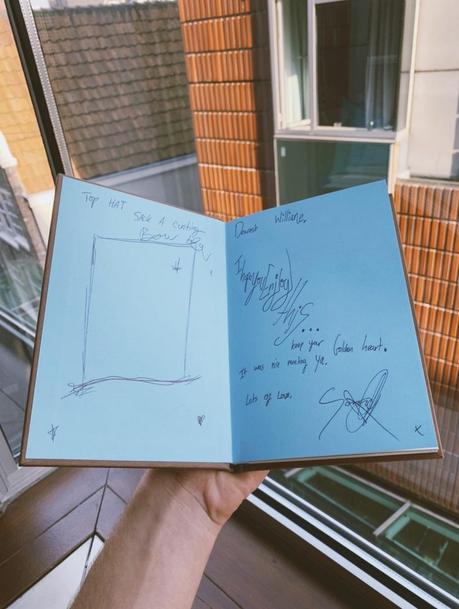 Top HAT
Dearest William,
I hope you Enjoy
this...
keep your Golden heart.
It was nice meeting Ya.
Lots of Love,
x